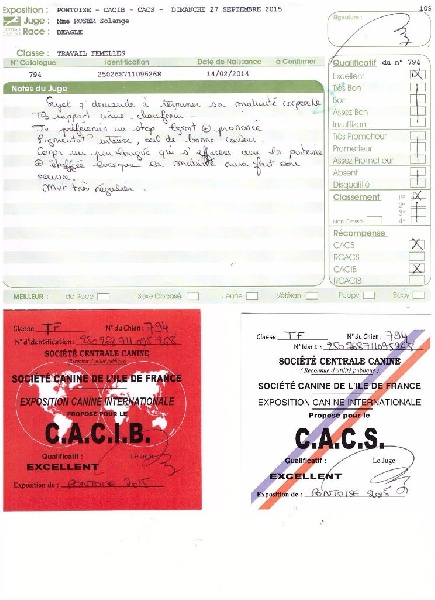 Exposition : PONTOISE - CACIB - CACS - DIMANCHE 27 SEPTEMBRE 2015
Juge : Mme Solange
Race : BEAGLE
Signature :
Classe : TRAVAIL FEMELLES
N° Catalogue Identification Date de Naissance à Confirmer
794 14/02/2014
Qualificatif du n° 794
Notes du Juge
Sujet demande à terminer sa maturité
Tb rapport crâne chanfrein
Je préférerais un stop prononcé
intense, œil de bonne couleur
Corps un peu qui
sa maturité aura fait son
œuvre.
Mvt très régulier.
Excellent X
Très Bon
Bon
Assez Bon
Insuffisant
Très Prometteur
Prometteur
Assez Prometteur
Absent
Disqualifié
Classement
Non Classé
Récompense
CACS X
RCACS
CACIB X
RCACIB
MEILLEUR : de Race Sexe Opposé Jeune Vétéran Puppy Baby
Classe : TF N° du Chien : 794
N° d'identification :
SOCIÉTÉ CENTRALE CANINE
(Reconnue d'utilité publique)
SOCIÉTÉ CANINE DE L'ILE DE FRANCE
EXPOSITION CANINE INTERNATIONALE
PROPOSÉ POUR LE
C.A.C.I.B.
Qualificatif : Le Juge
EXCELLENT
Exposition de : PONTOISE 2015
Classe : TF N° du Chien : 794
SOCIÉTÉ CENTRALE CANINE
(Reconnue d'utilité publique)
SOCIÉTÉ CANINE DE L'ILE DE FRANCE
EXPOSITION CANINE INTERNATIONALE
Proposé pour le
C.A.C.S.
Qualificatif : Le Juge
EXCELLENT
Exposition de : PONTOISE 2015